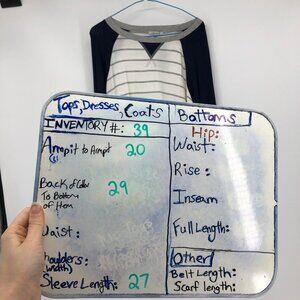 Tops, Dresses, Coats
INVENTORY #: 39
Armpit to Armpit 20
Back of Collar
To Bottom
of Hem
29
Waist:
Shoulders:
(width)
Sleeve Length: 27
Bottoms
Hip:
Waist:
Rise:
Inseam
Full Length:
Other
Belt Length:
Scarf length: